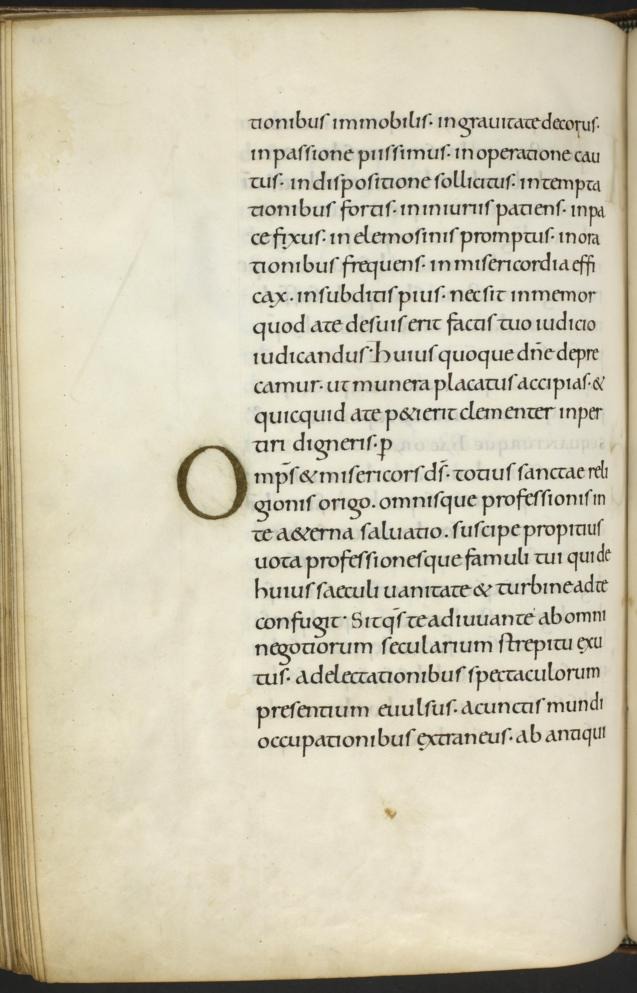 tionibus immobilis· ingrauitate decorus·
inpassione piissimus· inoperatione cau
tus· indispositione sollicitus· intempta
tionibus fortis· ininiuriis patiens· inpa
ce fixus· inelemosinis promptus· inora
tionibus frequens· inmisericordia effi
cax· insubditis pius· necsit inmemor
quod ate desuis erit factis tuo iudicio
iudicandus· huius quoque dñe depre
camur· ut munera placatus accipias· &
quicquid ate p&ierit clementer inper
tiri digneris· p
Omp̄s & misericors d̄s· totius sanctae reli
gionis origo· omnisque professionis in
te a&erna saluatio· suscipe propitius
uota professionesque famuli tui qui de
huius saeculi uanitate & turbine adte
confugit· Sit q̄s te adiuuante ab omni
negotiorum secularium strepitu exu
tus· adelectationibus spectaculorum
presentium euulsus· acunctis mundi
occupationibus extraneus· ab antiqui